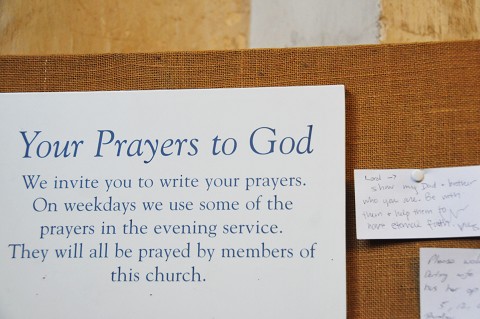 Your Prayers to God
We invite you to write your prayers.
On weekdays we use some of the
prayers in the evening service.
They will all be prayed by members of
this church.
Lord →
show my Dad +
who you are. Be with
them + help them to
have eternal faith.
Please